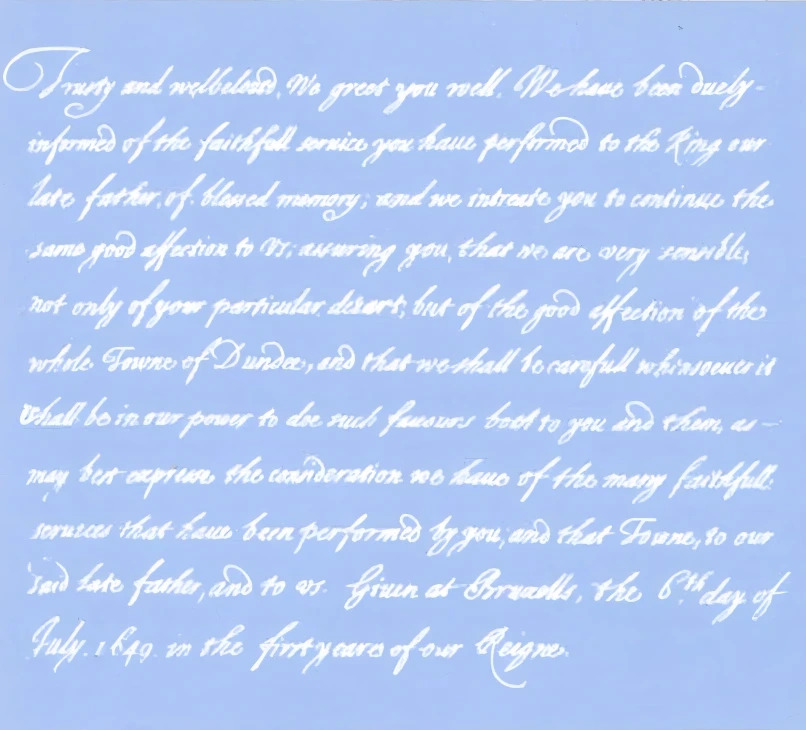 Trusty and welbeloved, We greet you well. We have been duely
informed of the faithfull service you haue performed to the King our
late father, of blessed memory; and we intreate you to continue the
same good affection to Vs; assuring you, that we are very sensible,
not only of your particular desart, but of the good affection of the
whole Towne of Dundee, and that we shall be carefull whensoeuer it
shall be in our power to doe such fauours both to you and them, as
may best expresse the consideration we haue of the many faithfull
seruices that haue been performed by you, and that Towne, to our
said late father, and to vs. Giuen at Bruxells, the 6th. day of
July. 1649. in the first yeare of our Reigne.